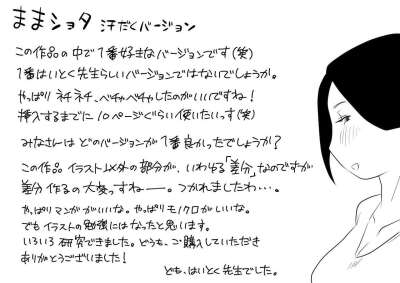 ままショタ 汗だくバージョン
この作品の中で1番好きなバージョンです(笑)
1番はいとく先生らしいバージョンではないでしょうか。
やっぱりネチネチ、ベチャベチャしたのがいいですね!
挿入するまでに10ページぐらい使いたいっす(笑)
みなさんはどのバージョンが1番良かったでしょうか?
この作品イラスト以外の部分が、いわゆる「差分」なのですが
差分作るの大変っすねー。つかれましたわ…。
やっぱりマンガがいいな。やっぱりモノクロがいいな。
でもイラストの勉強にはなったと思います。
いろいろ研究できました。どうも、ご購入していただき
ありがとうございました!
ども、はいとく先生でした。